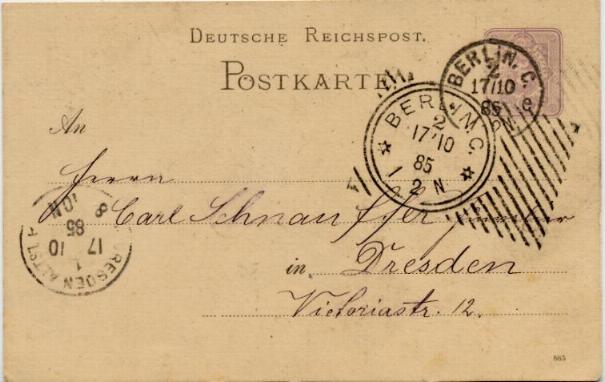 DEUTSCHE REICHSPOST.
POSTKARTE
BERLIN. C.
2
17/10
85
BERLIN. C.
2
17/10
85
1 2 N.
An
Herrn
Carl Schnauffer
in Dresden
Victoriastr. 12.
DRESDEN ALTST.
1
17
10
85
8